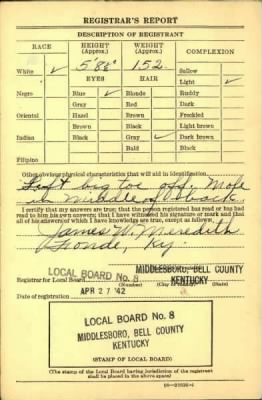 REGISTRAR'S REPORT
DESCRIPTION OF REGISTRANT
RACE HEIGHT (Approx.) WEIGHT (Approx.) COMPLEXION
White ✓ 5'8" 152 Sallow
EYES HAIR Light ✓
Negro Blue ✓ Blonde Ruddy
Gray Red Dark
Oriental Hazel Brown Freckled
Brown Black Light brown
Indian Black Gray ✓ Dark brown
Bald Black
Filipino
Other obvious physical characteristics that will aid in identification
Left big toe off. Mole
in middle of back
I certify that my answers are true; that the person registered has read or has had
read to him his own answers; that I have witnessed his signature or mark and that
all of his answers of which I have knowledge are true, except as follows:
James W. Meredith
Fonde, Ky.
Registrar for Local Board LOCAL BOARD No. 8 MIDDLESBORO, BELL COUNTY
KENTUCKY
Date of registration APR 27 '42
LOCAL BOARD No. 8
MIDDLESBORO, BELL COUNTY
KENTUCKY
(STAMP OF LOCAL BOARD)
(The stamp of the Local Board having jurisdiction of the registrant
shall be placed in the above space)